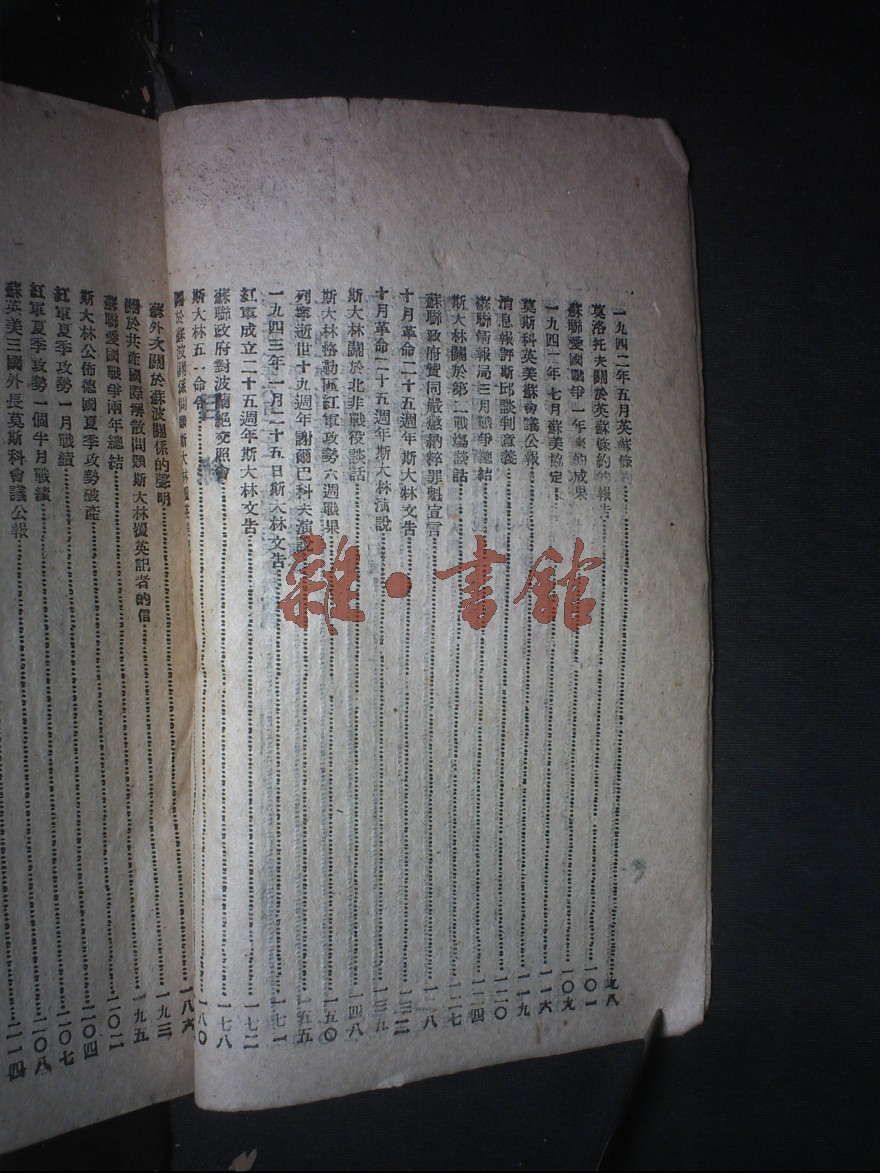 一九四二年五月英蘇條約……九八
莫洛托夫關於英蘇條約的報告……一〇一
蘇聯愛國戰爭一年來的成果……一〇九
一九四二年七月蘇美協定……一一六
莫斯科英美蘇會議公報……一一九
消息報評斯邱談判意義……一二〇
蘇聯情報局三月戰爭總結……一二四
斯大林關於第二戰場談話……一二七
蘇聯政府贊同嚴懲納粹罪魁宣言……一二八
十月革命二十五週年斯大林文告……一三二
十月革命二十五週年斯大林演說……一三九
斯大林關於北非戰役談話……一四八
斯大林格勒區紅軍攻勢六週戰果……一五〇
列寧逝世十九週年謝爾巴科夫演說……一五五
一九四三年一月二十五日斯大林文告……一七一
紅軍成立二十五週年斯大林文告……一七二
蘇聯政府對波蘭絕交照會……一七八
斯大林五一命令……一八〇
關於蘇波關係問題斯大林……一八六
蘇外次關於蘇波關係的聲明……一九三
關於共產國際解散問題斯大林復英記者的信……一九五
蘇聯愛國戰爭兩年總結……二〇二
斯大林公佈德國夏季攻勢破產……二〇四
紅軍夏季攻勢一月戰績……二〇七
紅軍夏季攻勢一個半月戰績……二〇八
蘇英美三國外長莫斯科會議公報……二一四
雜·書館